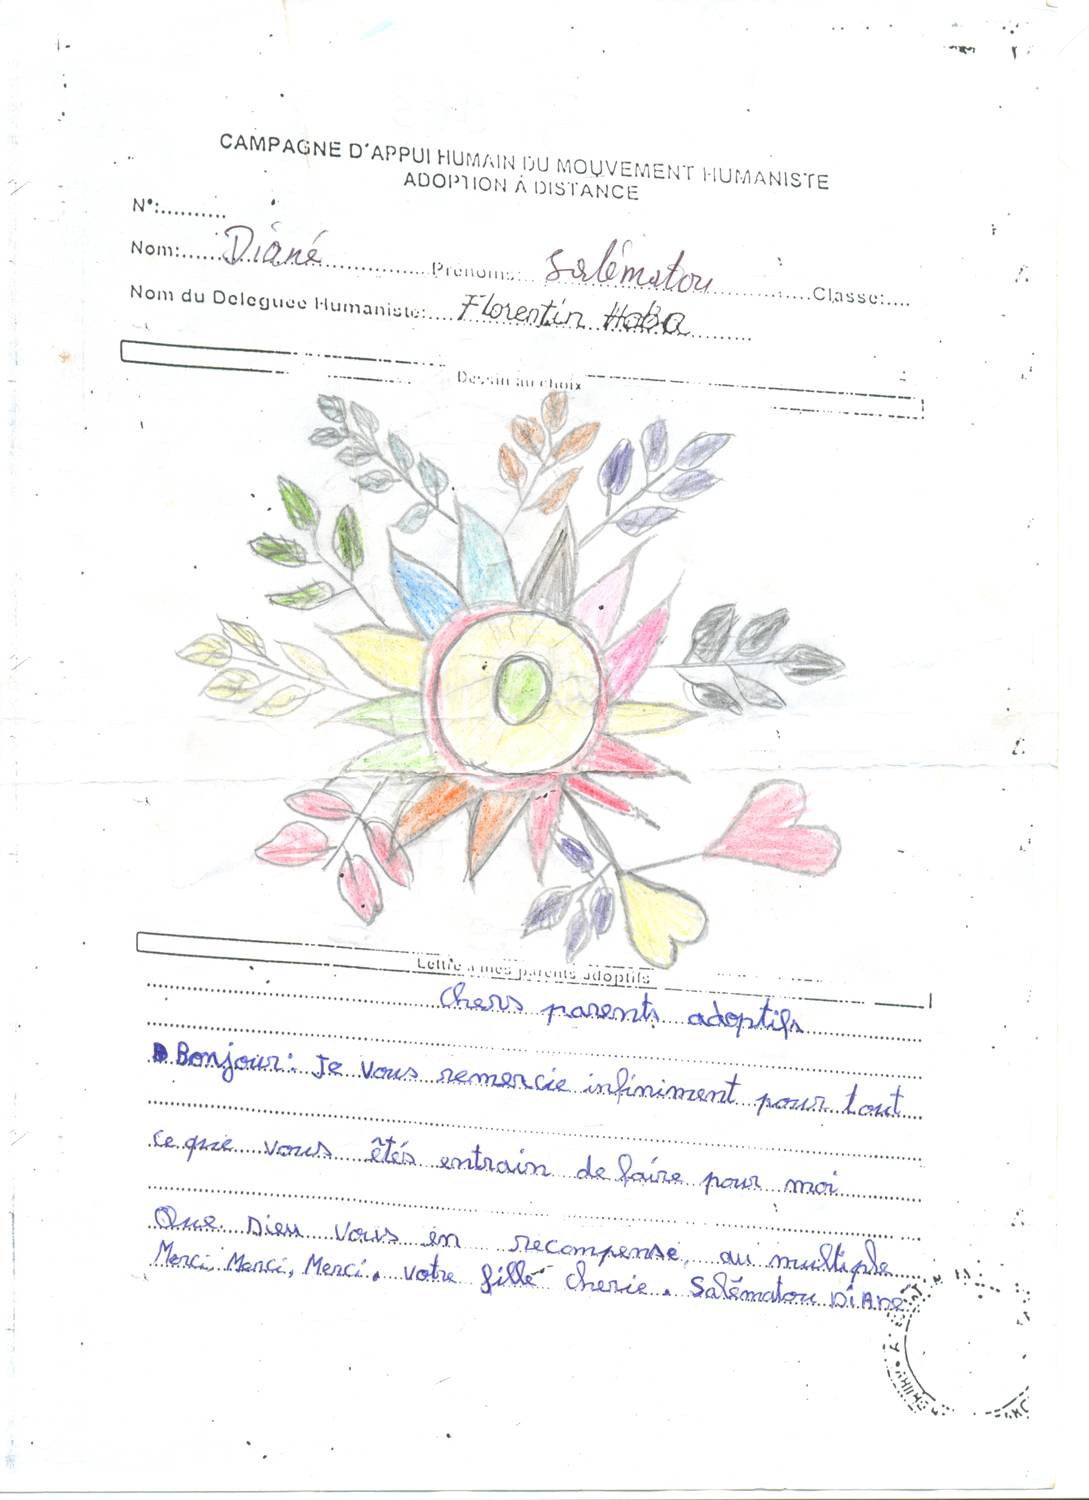 CAMPAGNE D'APPUI HUMAIN DU MOUVEMENT HUMANISTE
ADOPTION À DISTANCE
N°:..........
Nom:......Diané.................Prénoms:...Salématou...............Classe:....
Nom du Deleguée Humaniste:....Florentin Haba..........
Dessin au choix
Lettre à mes parents adoptifs
Chers parents adoptifs
Bonjour: Je vous remercie infiniment pour tout
ce que vous êtés entrain de faire pour moi
Que Dieu vous en recompense au multiple
Merci, Merci, Merci. votre fille cherie. Salématou DiANé